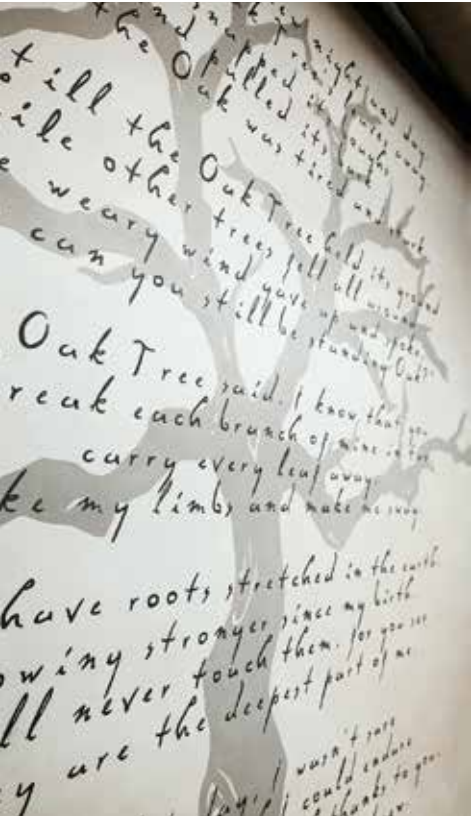 night and day
snapped its
pulled its bark
the Oak was tired and stark
till the Oak Tree held its ground
ile other trees fell all around
e weary wind gave up and spoke,
can you still be standing Oak?"
Oak Tree said, I know that you
reak each branch of mine in two
carry every leaf away
ke my limbs and make me sway
have roots stretched in the earth
owing stronger since my birth
ll never touch them, for you see
ey are the deepest part of me
day, I wasn't sure
I could endure
thanks to you,